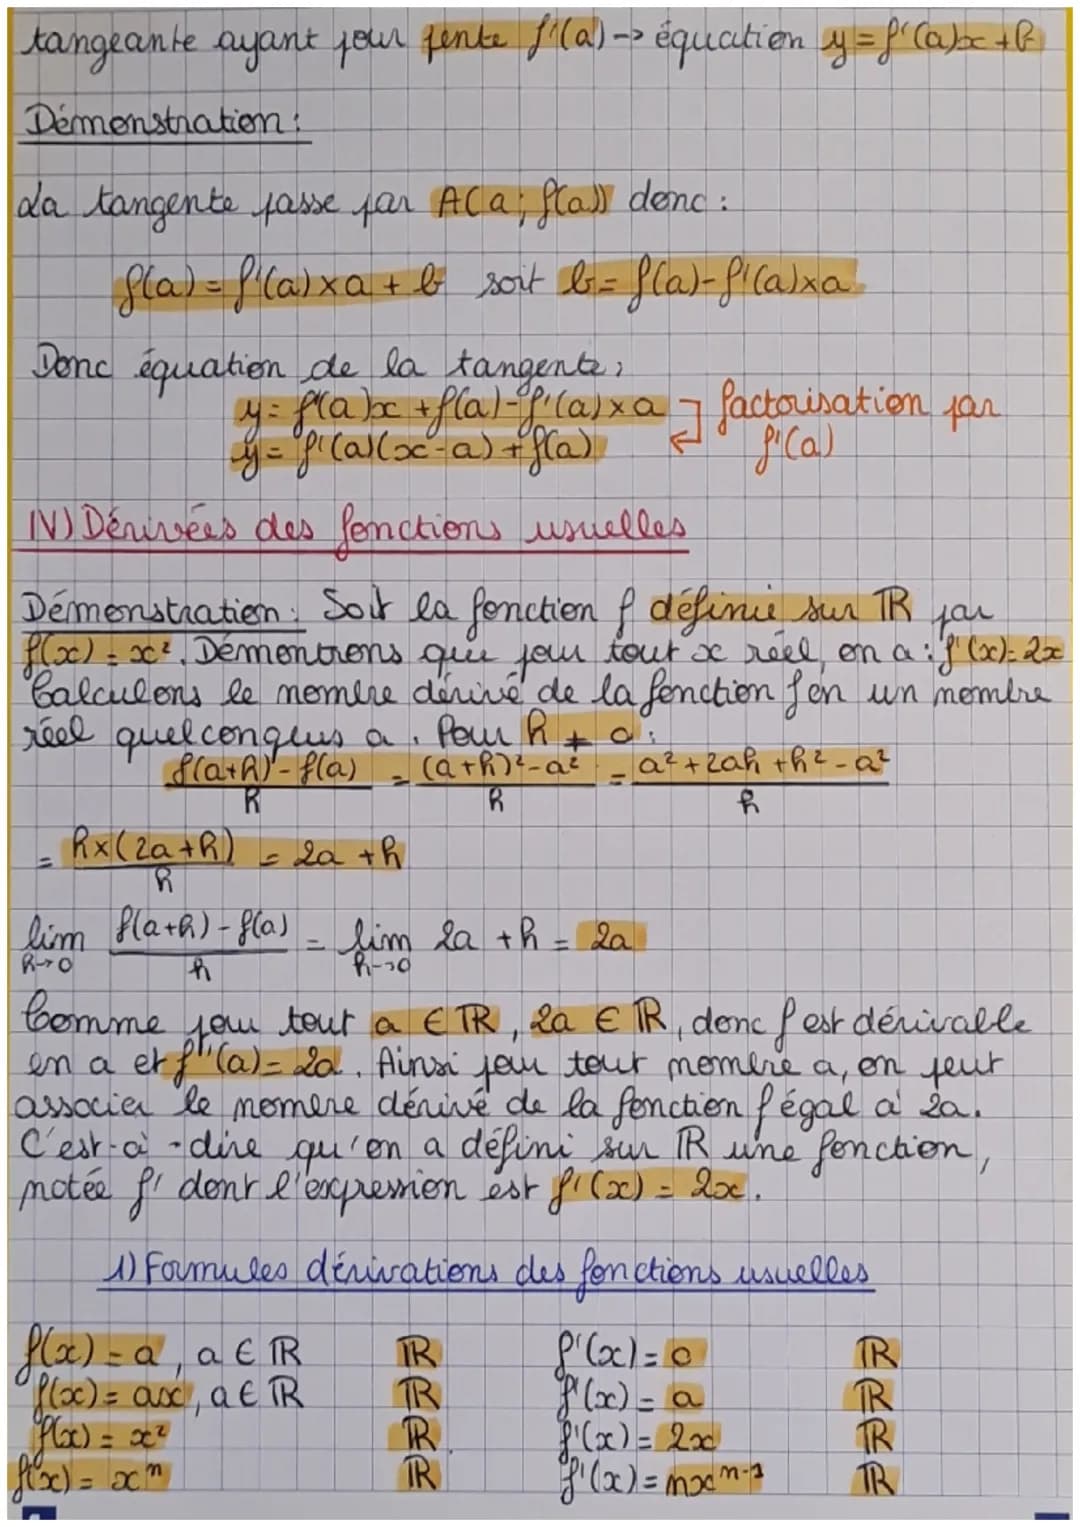 tangeante ayant pour pente f'(a) -> équation y = f'(a)x + b
Démonstration :
La tangente passe par A(a; f(a)) donc :
f(a) = f'(a) × a + b soit b = f(a) - f'(a) × a
Donc équation de la tangente :
y = f'(a)x + f(a) - f'(a) × a factorisation par
y = f'(a)(x - a) + f(a) f'(a)
IV) Dérivées des fonctions usuelles
Démonstration : Soit la fonction f définie sur ℝ par
f(x) = x². Démontrons que pour tout x réel, on a : f'(x) = 2x
Calculons le nombre dérivé de la fonction f en un nombre
réel quelconque a. Pour h ≠ 0 :
f(a+h) - f(a) / h = (a+h)² - a² / h = a² + 2ah + h² - a² / h
= h × (2a + h) / h = 2a + h
lim h→0 f(a+h) - f(a) / h = lim h→0 2a + h = 2a
Comme pour tout a ∈ ℝ, 2a ∈ ℝ, donc f est dérivable
en a et f''(a) = 2a. Ainsi pour tout nombre a, on peut
associer le nombre dérivé de la fonction f égal à 2a.
C'est-à-dire qu'on a défini sur ℝ une fonction,
notée f' dont l'expression est f'(x) = 2x.
1) Formules dérivations des fonctions usuelles
f(x) = a, a ∈ ℝ ℝ f'(x) = 0 ℝ
f(x) = ax, a ∈ ℝ ℝ f'(x) = a ℝ
f(x) = x² ℝ f'(x) = 2x ℝ
f(x) = xⁿ ℝ f'(x) = nxⁿ⁻¹ ℝ